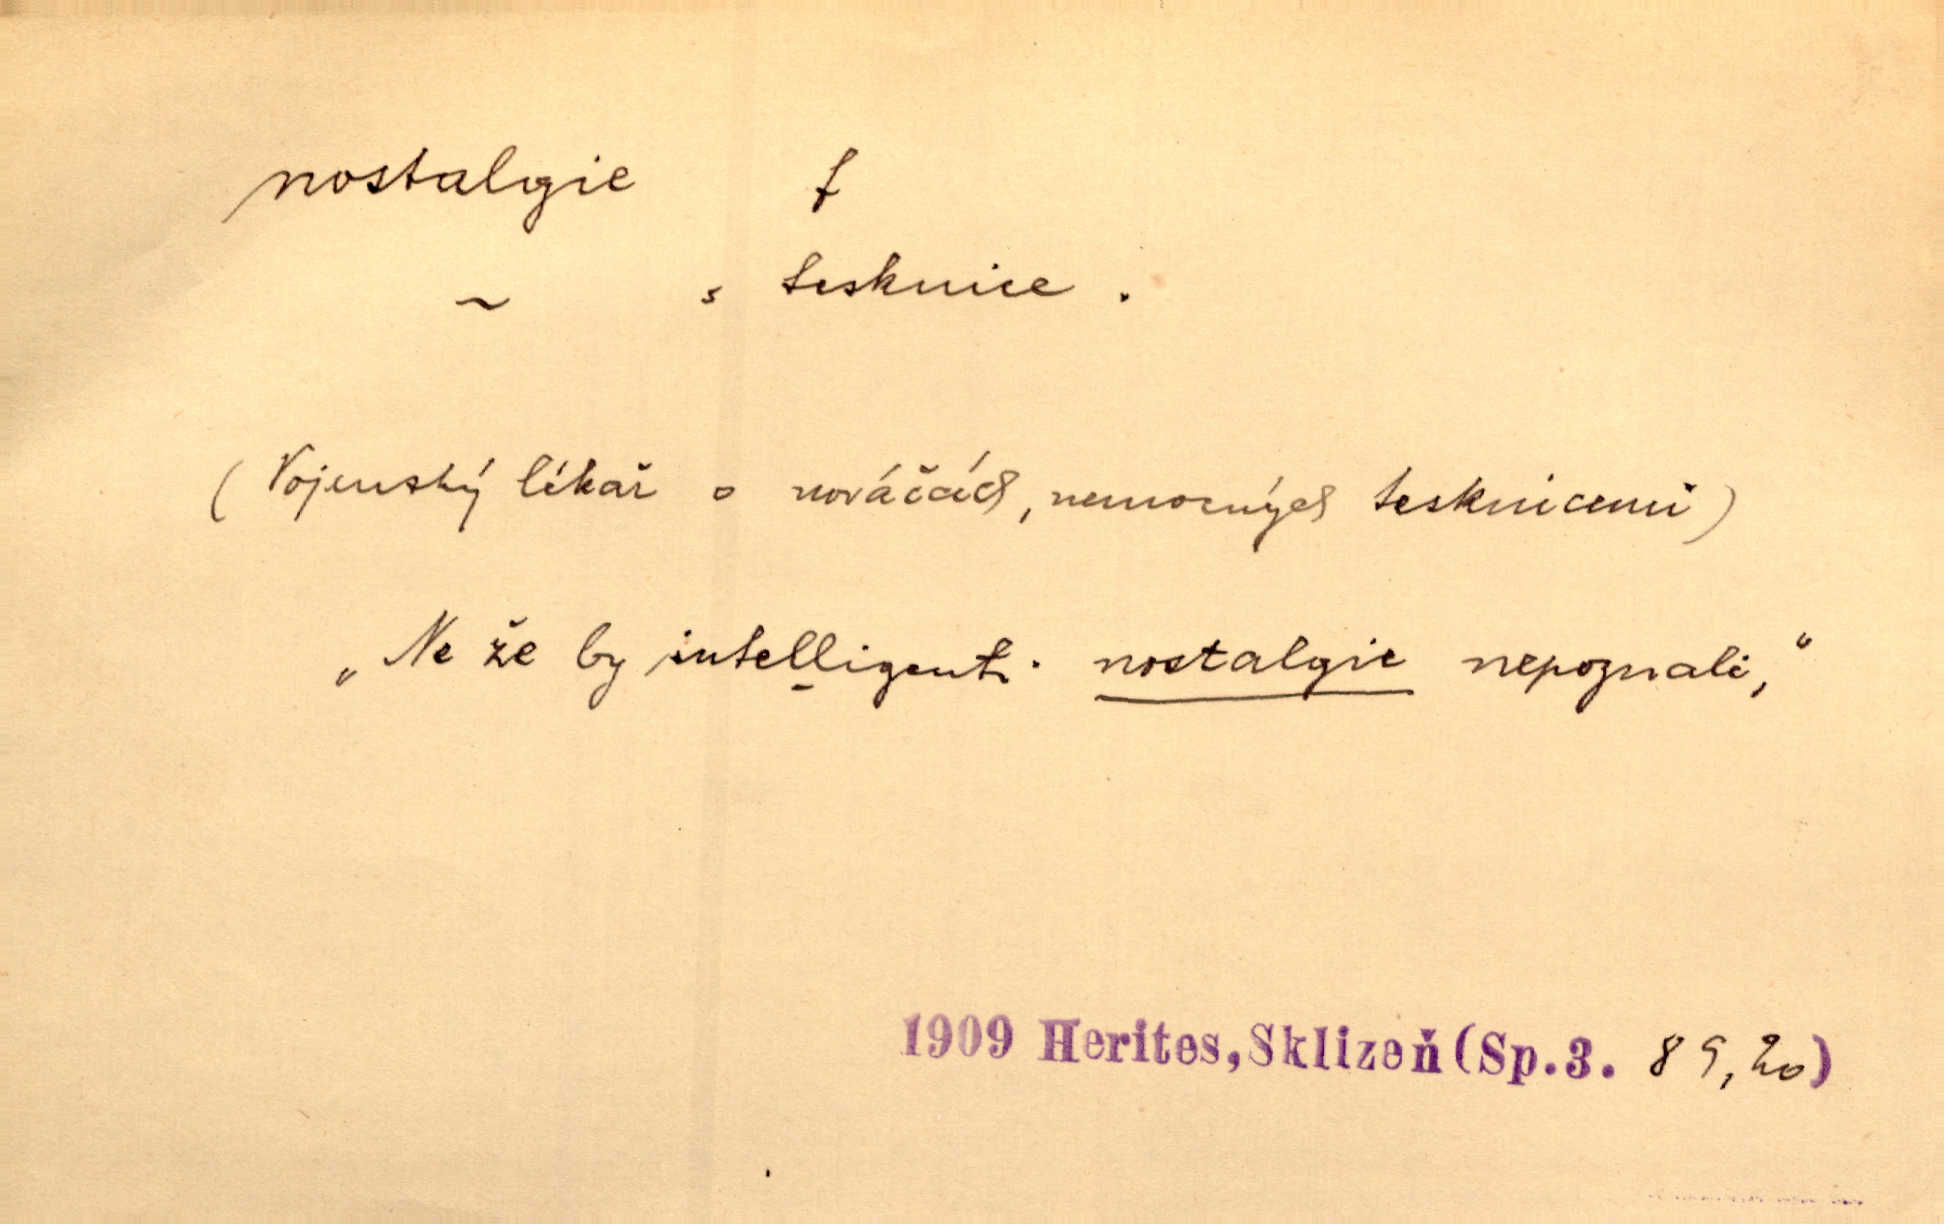 nostalgie f
~ , tesknice .
(Vojenský lékař o nováčcích, nemocných tesknicemi)
„Ne že by intelligenti nostalgie nepoznali,“
1909 Herites, Sklizeň (Sp.3. 89,20)